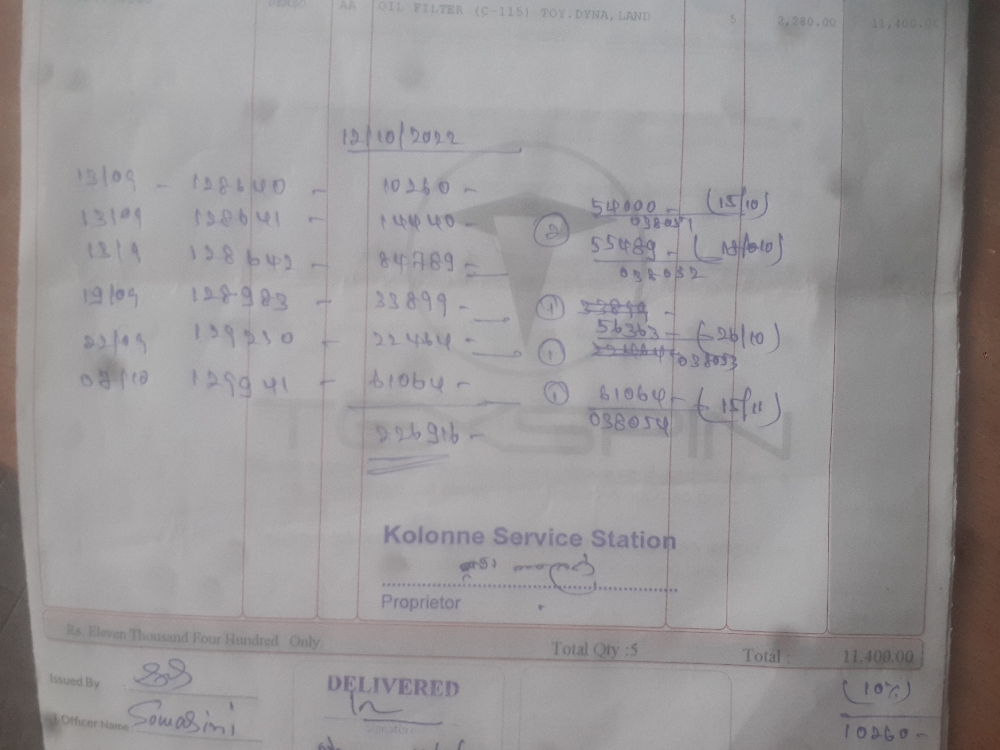 AA OIL FILTER (C-115) TOY.DYNA,LAND 5 2,280.00 11,400.00
12/10/2022
13/09 - 128640 - 10260 -
54000 - (15/10)
038051
13/09 128641 - 14440 -
2
55489 - (18/10)
038052
13/9 128642 - 84789 -
19/09 128983 - 33899 -
1 33899 -
56363 - (26/10)
22/09 129230 - 22464 -
1 22464 038053
03/10 129941 - 61064 -
1 61064 - (15/11)
038054
226916 -
TOXSPIN
Kolonne Service Station
Proprietor
Rs. Eleven Thousand Four Hundred Only
Total Qty :5 Total : 11,400.00
Issued By
(10%)
DELIVERED
Officer Name Somasiri
Signature
10260 -